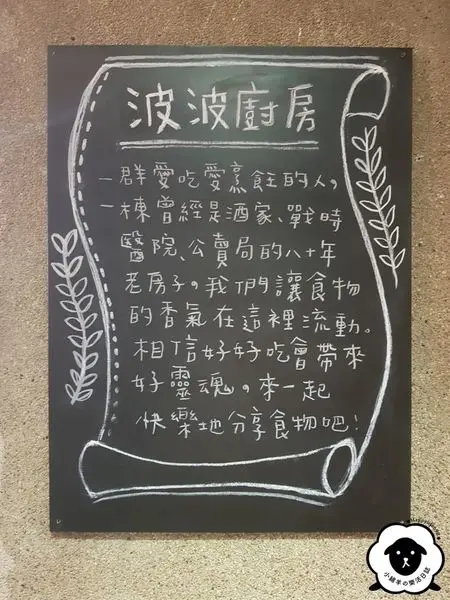 波波廚房
一群愛吃愛烹飪的人。
一棟曾經是酒家、戰時
醫院、公賣局的八十年
老房子。我們讓食物
的香氣在這裡流動。
相信好好吃會帶來
好靈魂。來一起
快樂地分享食物吧!
小綿羊の樂活日誌